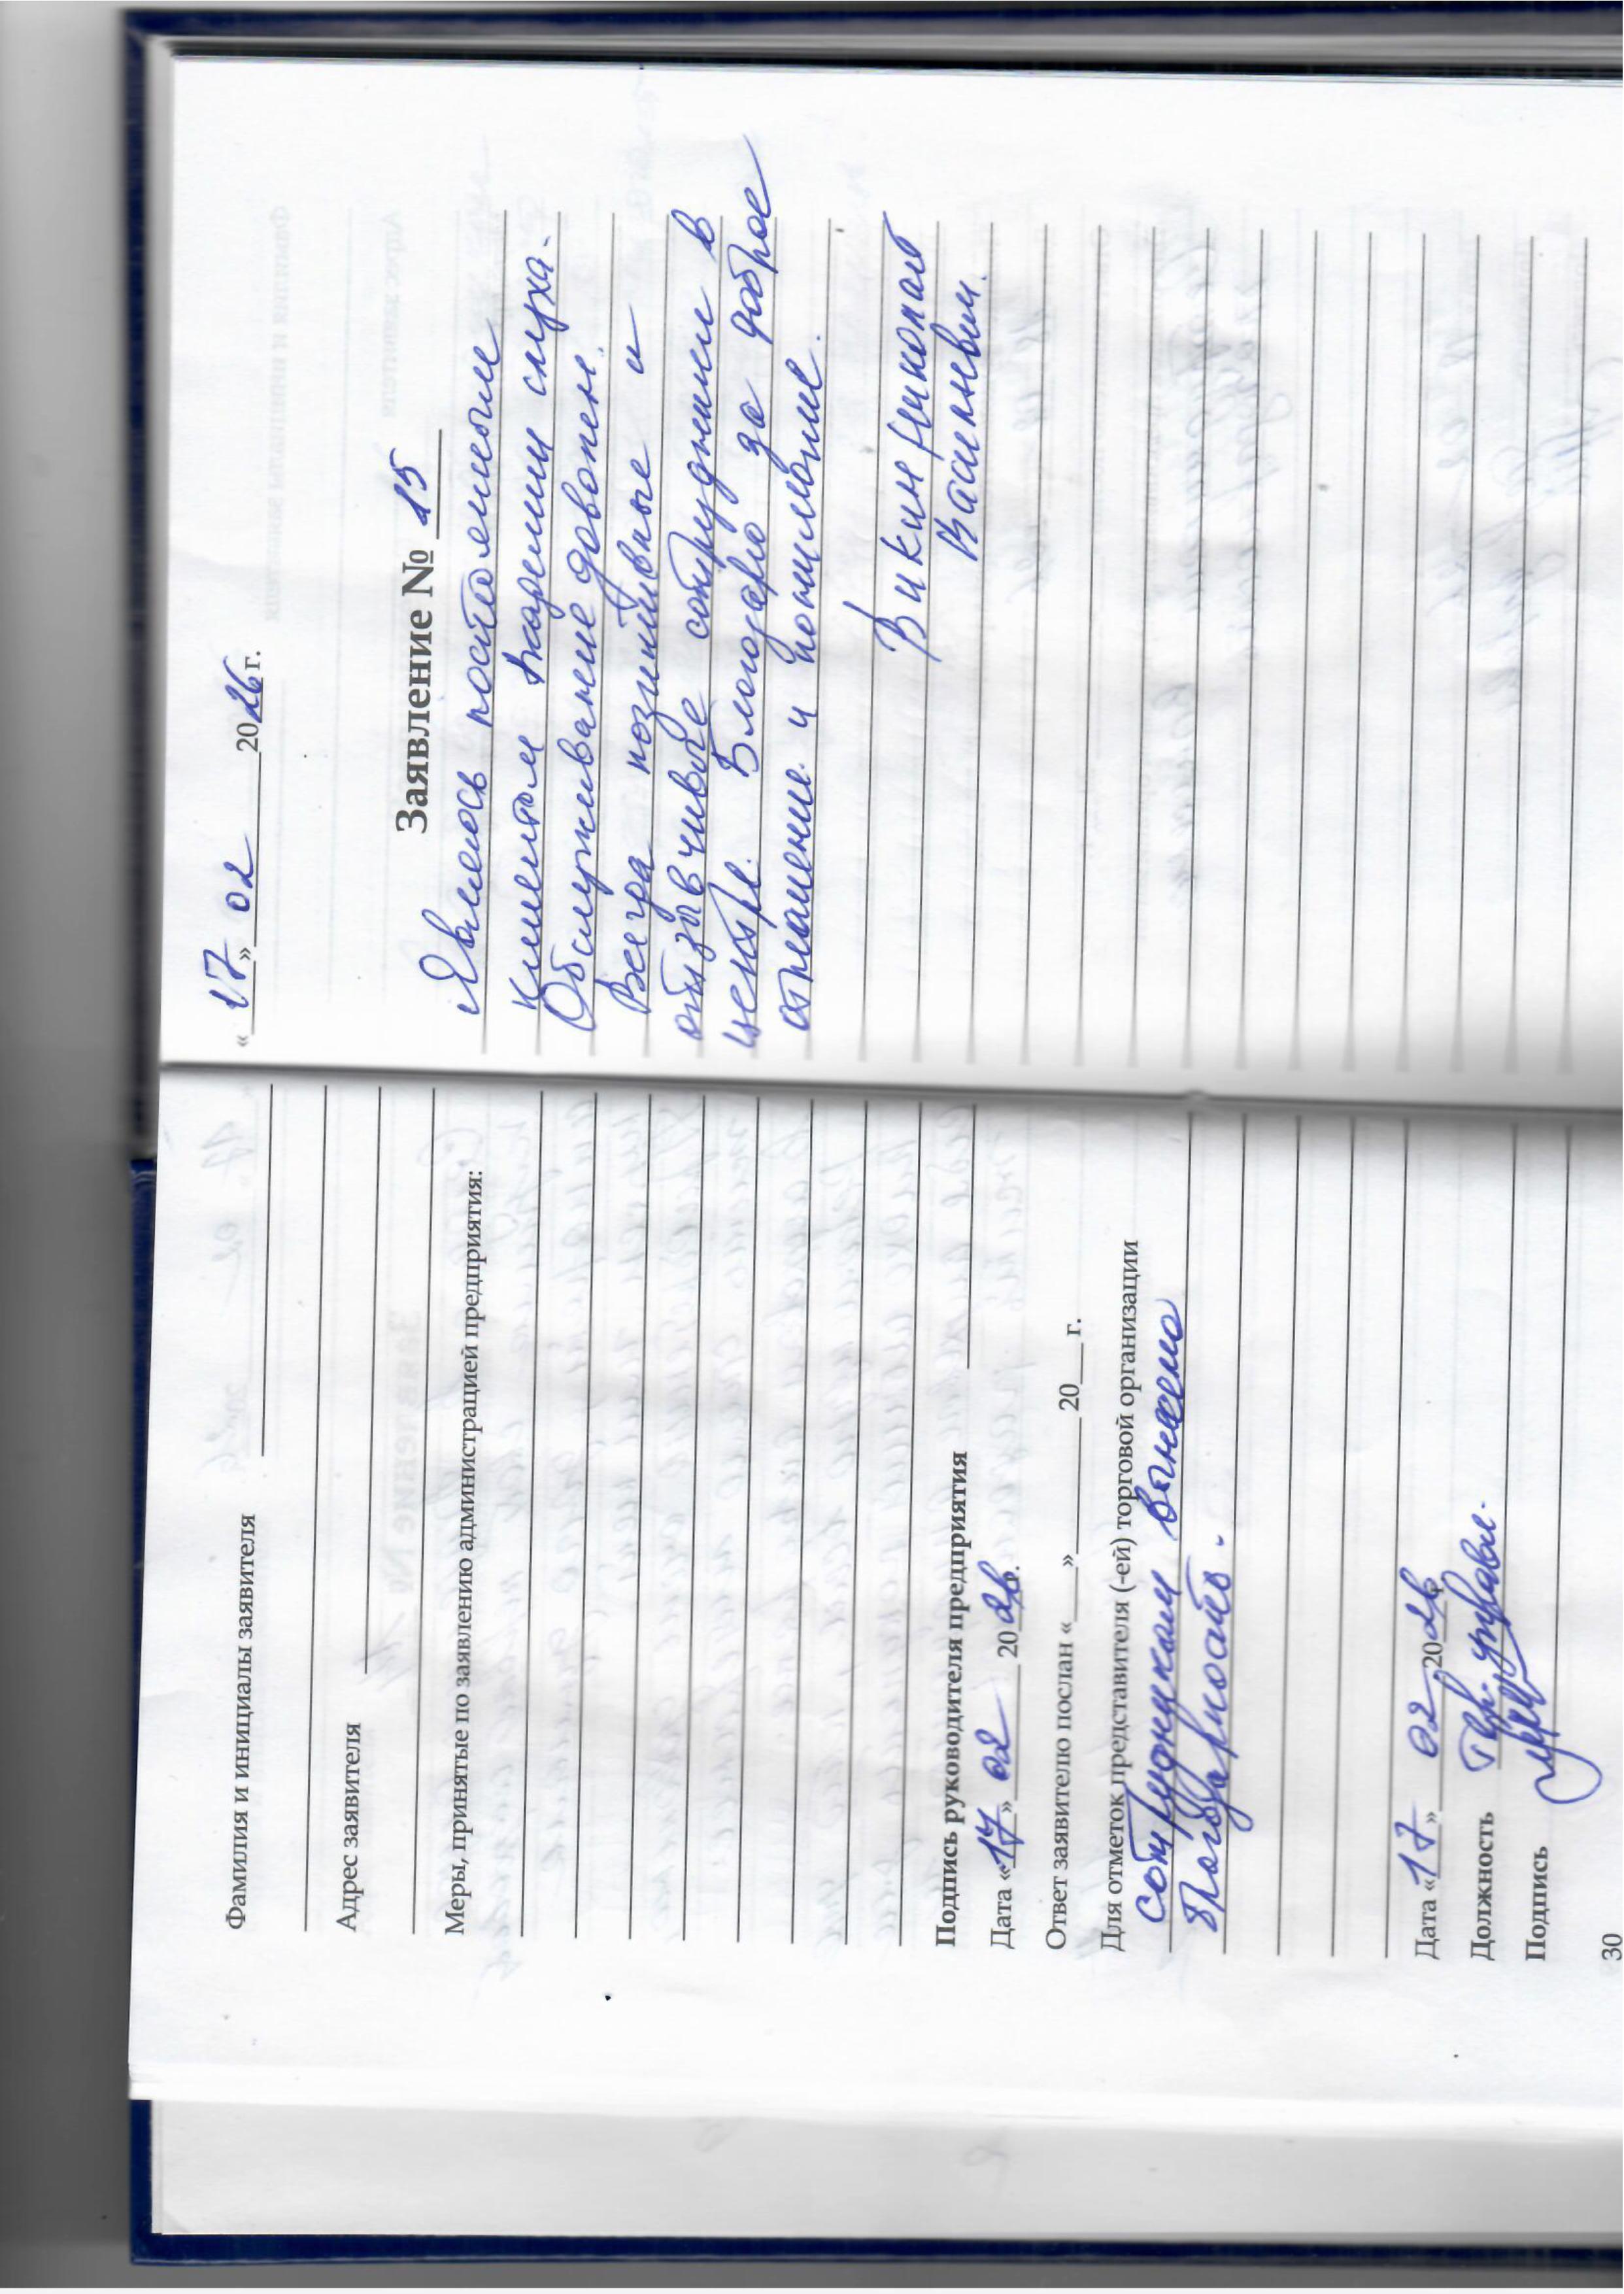 Фамилия и инициалы заявителя
Адрес заявителя
Меры, принятые по заявлению администрацией предприятия:
Подпись руководителя предприятия
Дата «17» 02 2026г.
Ответ заявителю послан «___»________20___г.
Для отметок представителя (-ей) торговой организации
сотрудникам вынесено
благодарность.
Дата «17» 02 2026
Должность Тер. управл.
Подпись
30
«17» 02 2026г.
Заявление № 15
Являюсь постоянным
клиентом Академии слуха.
Обслуживание доволен.
Всегда позитивные и
отзывчивые сотрудники в
центре. Благодарю за доброе
отношение и понимание.
Викин Николай
Васильевич.